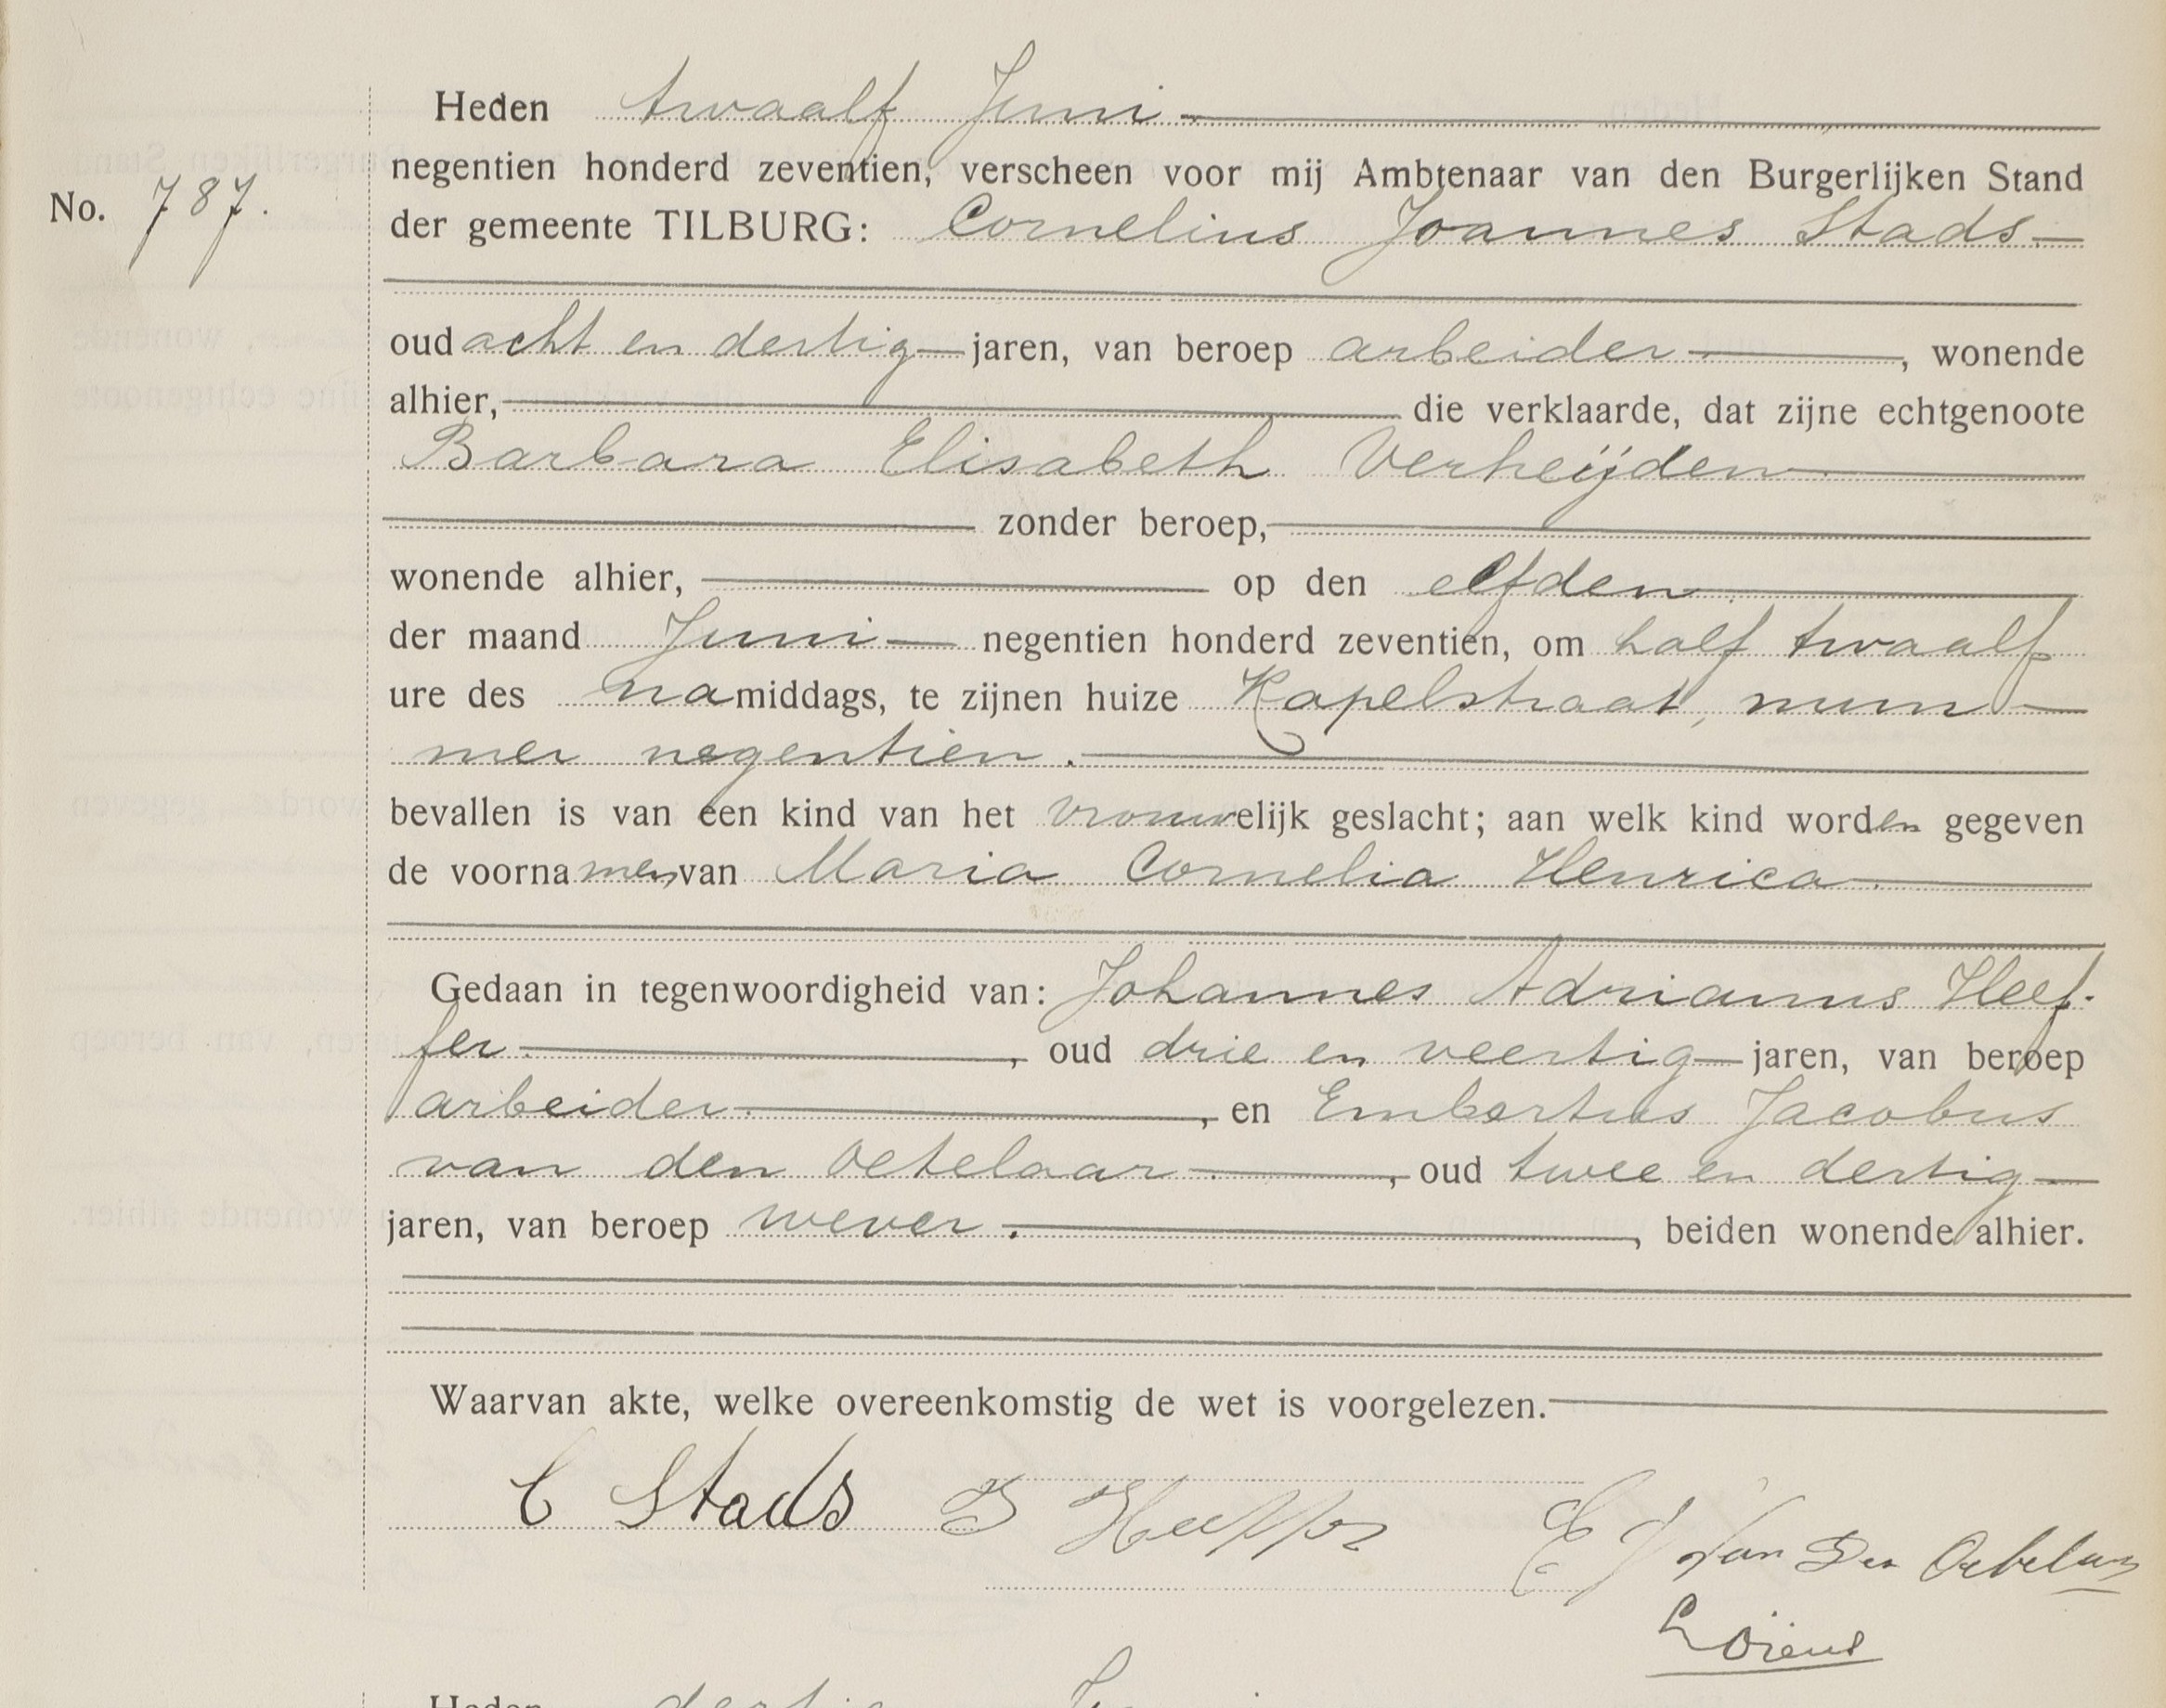 Heden twaalf Juni
negentien honderd zeventien, verscheen voor mij Ambtenaar van den Burgerlijken Stand
No. 787.
der gemeente TILBURG: Cornelius Joannes Stads
oud acht en dertig jaren, van beroep arbeider, wonende
alhier, die verklaarde, dat zijne echtgenoote
Barbara Elisabeth Verheijden
zonder beroep,
wonende alhier, op den elfden
der maand Juni negentien honderd zeventien, om half twaalf
ure des namiddags, te zijnen huize Kapelstraat, num-
mer negentien.
bevallen is van een kind van het vrouwelijk geslacht; aan welk kind worden gegeven
de voornamen van Maria Cornelia Henrica
Gedaan in tegenwoordigheid van: Johannes Adrianus Heef-
fer, oud drie en veertig jaren, van beroep
arbeider, en Embertus Jacobus
van den Oetelaar, oud twee en dertig
jaren, van beroep wever., beiden wonende alhier.
Waarvan akte, welke overeenkomstig de wet is voorgelezen.
C Stads J Heeffer E J Van Den Oetelaar
Heden dertig Juni